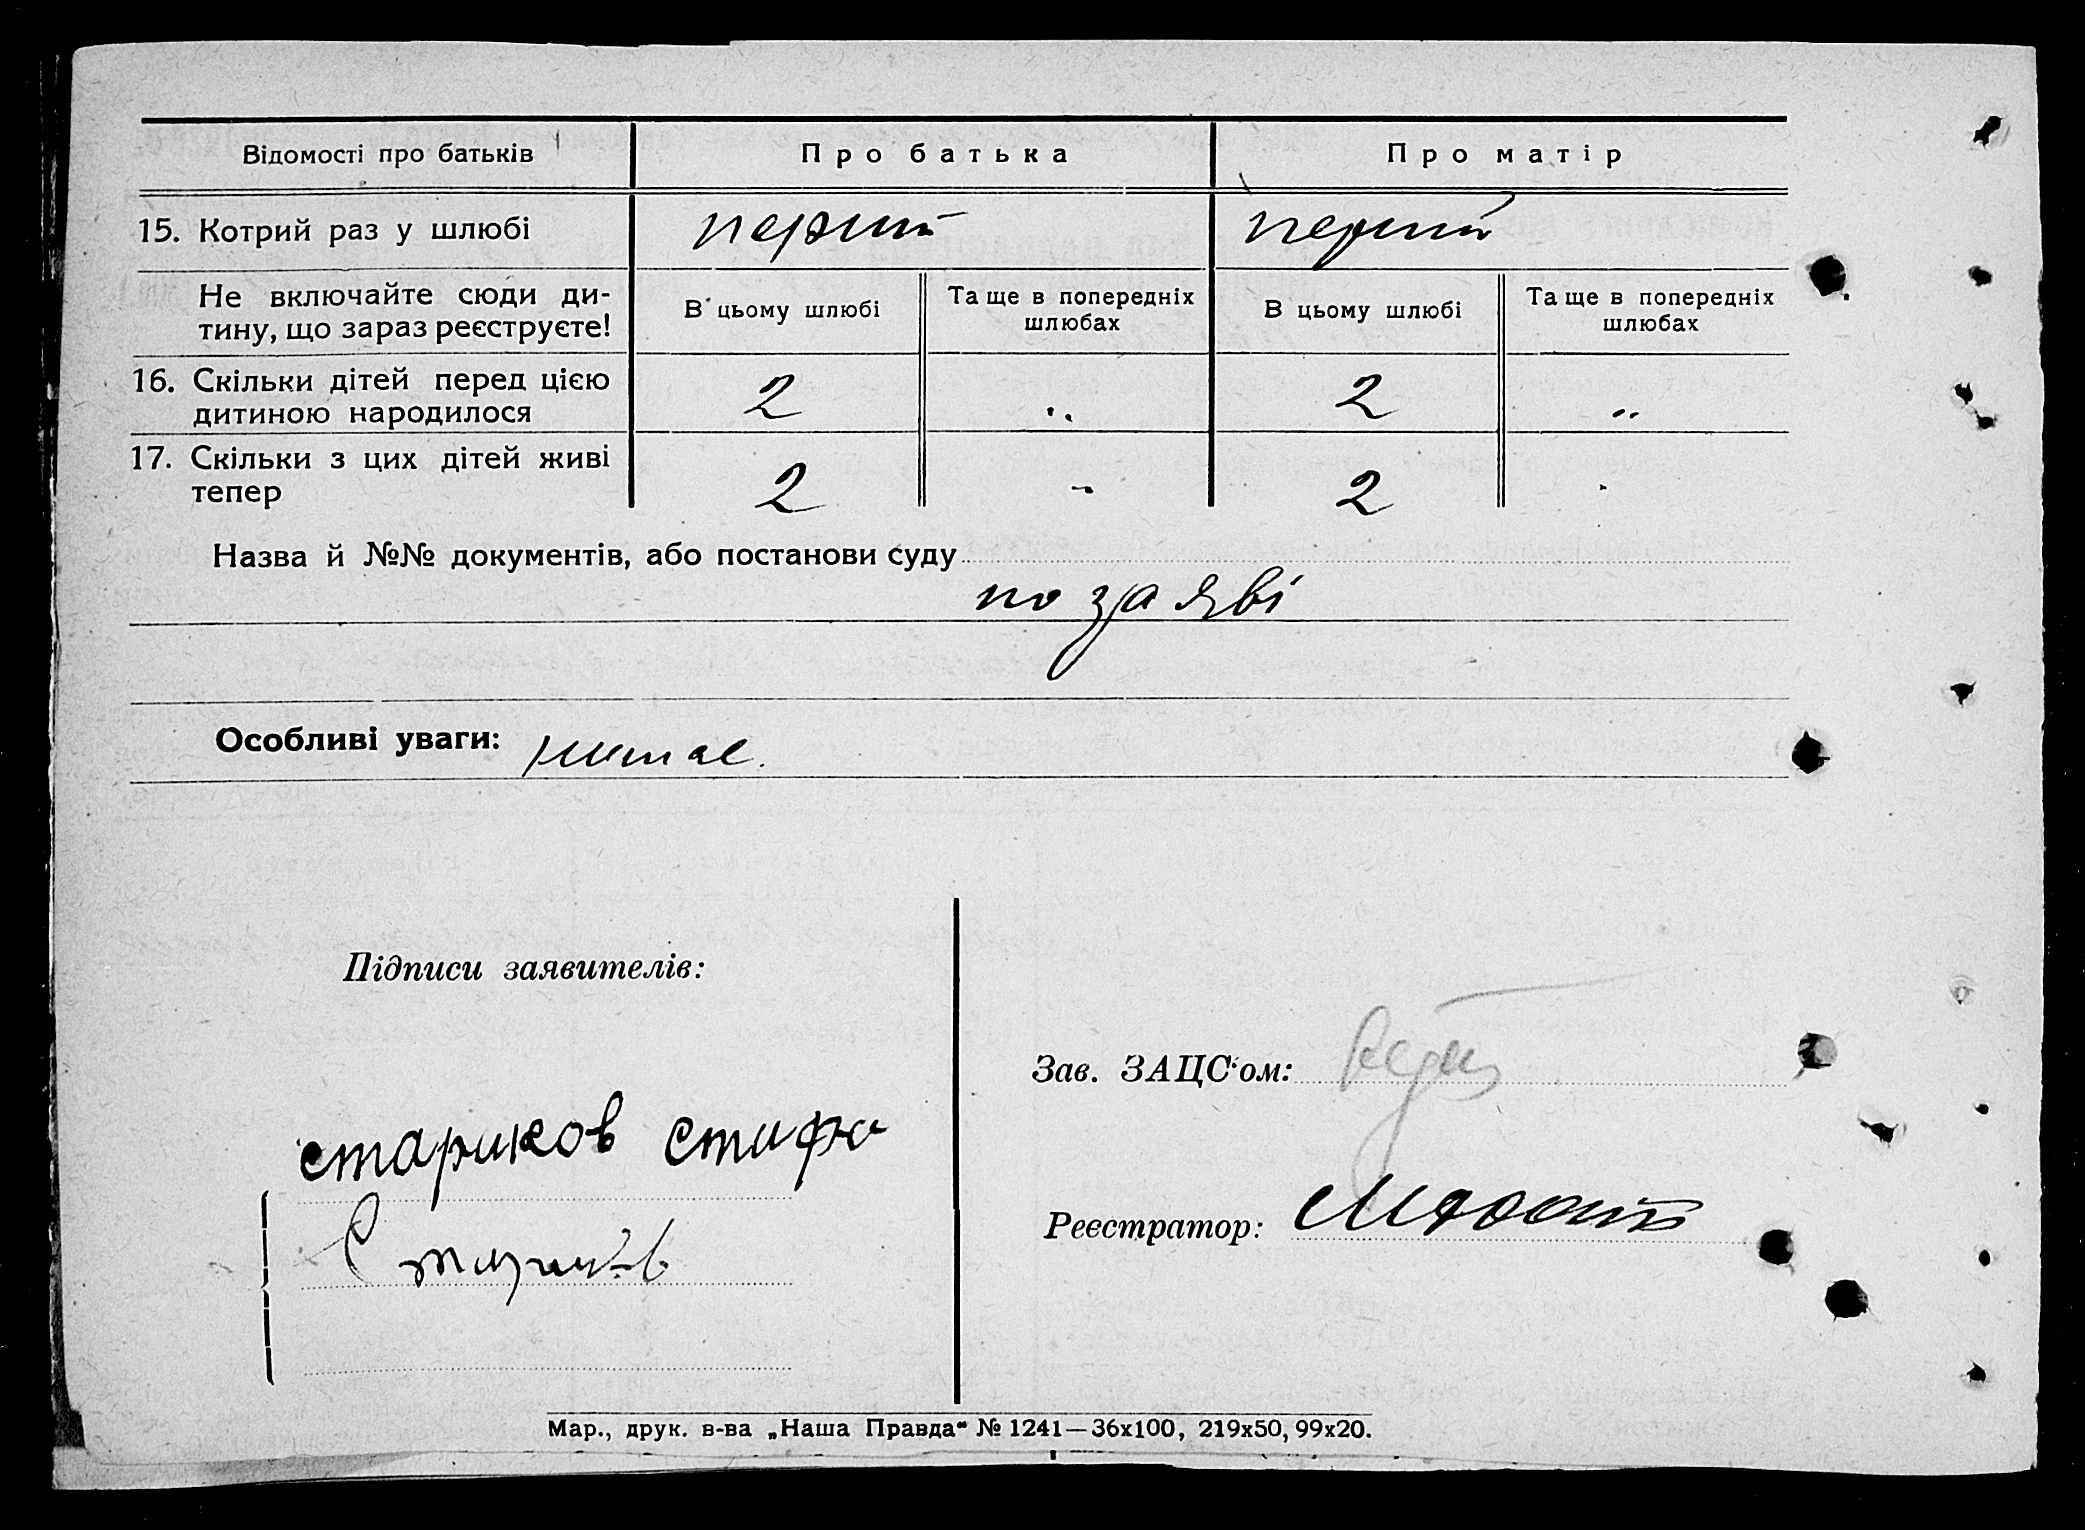 Відомості про батьків Про батька Про матір
15. Котрий раз у шлюбі перший перший
Не включайте сюди ди-
тину, що зараз реєструєте!
В цьому шлюбі Та ще в попередніх
шлюбах
В цьому шлюбі Та ще в попередніх
шлюбах
16. Скільки дітей перед цією
дитиною народилося 2 „ 2 „
17. Скільки з цих дітей живі
тепер 2 - 2
Назва й №№ документів, або постанови суду
по заяві
Особливі уваги: немає.
Підписи заявителів:
Зав. ЗАЦС'ом:
стариков
Реєстратор:
Стариков
Мар., друк. в-ва „Наша Правда“ № 1241—36х100, 219х50, 99х20.